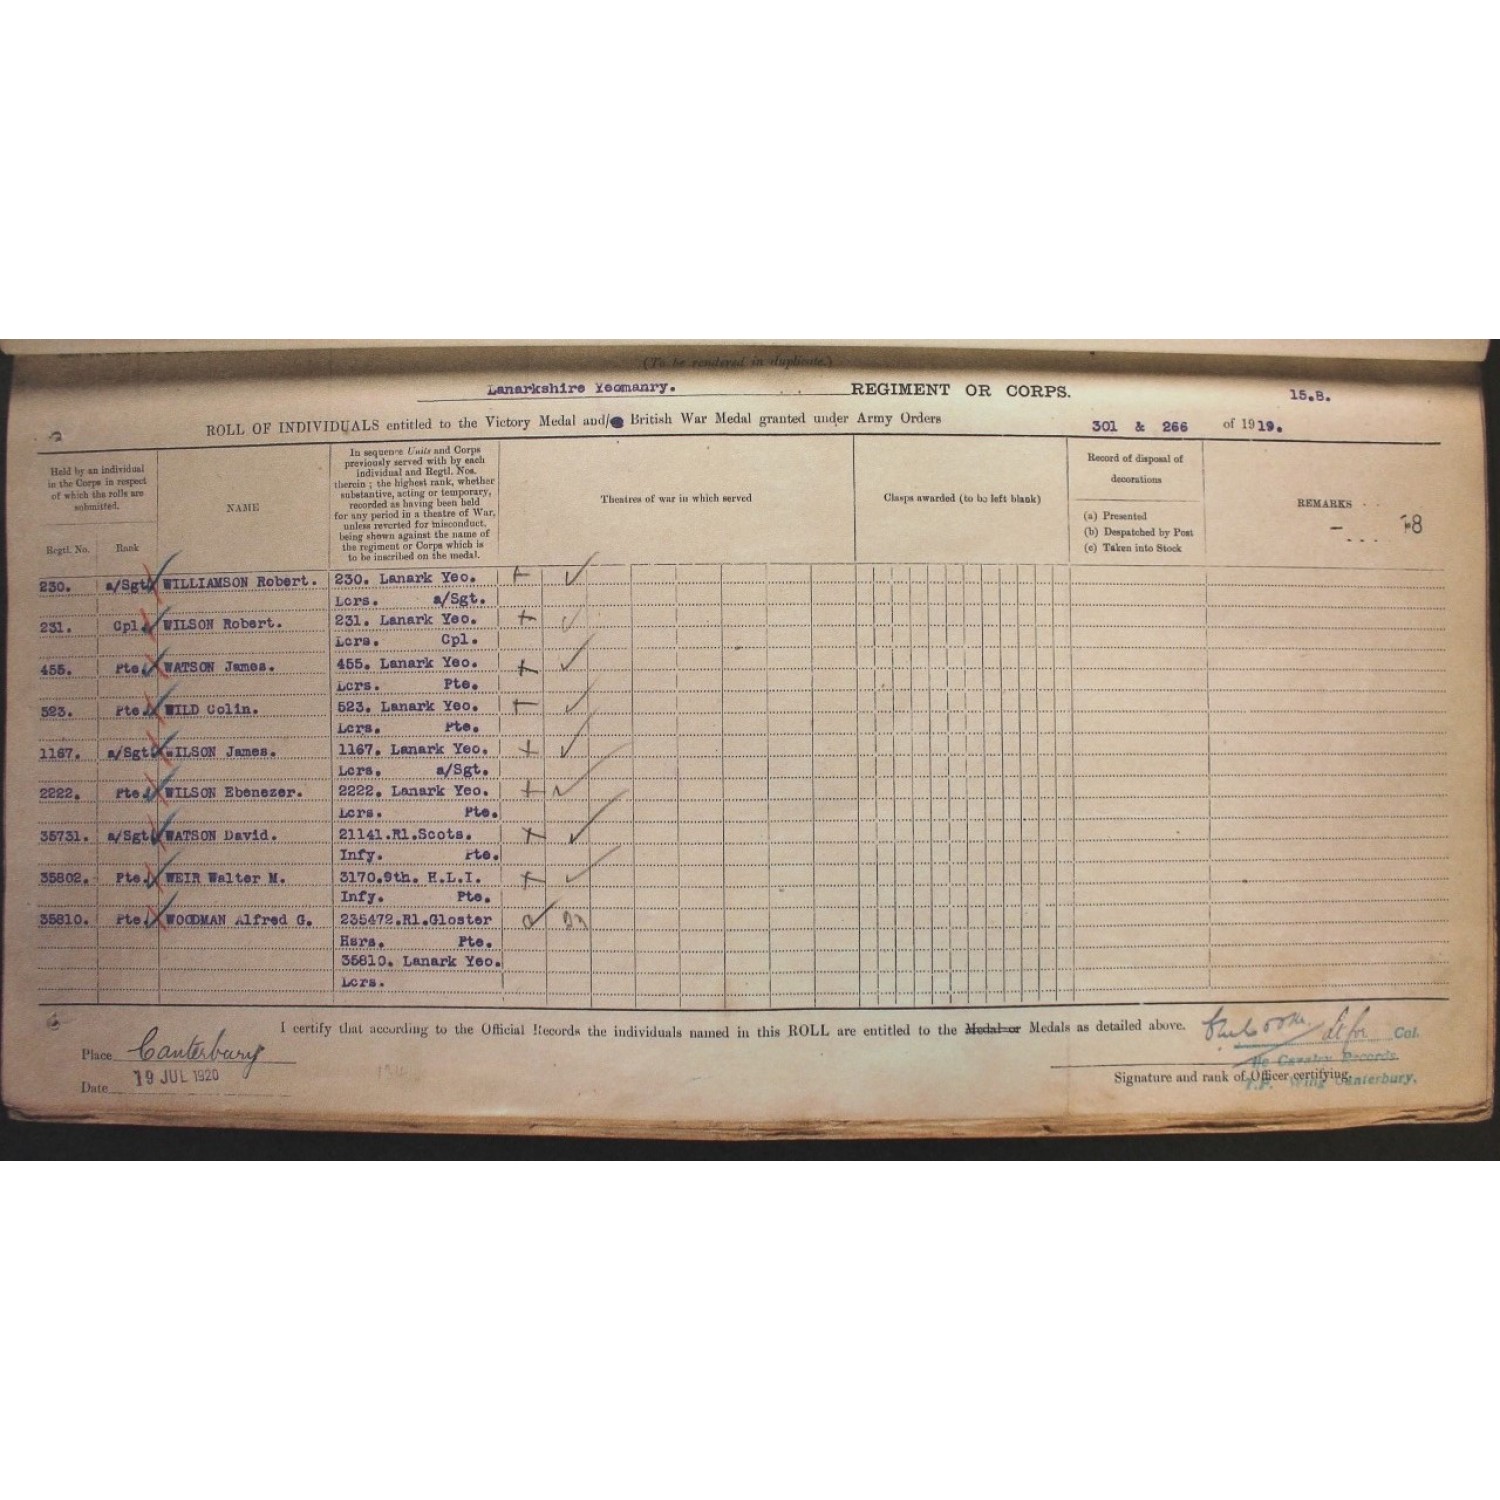 (To be rendered in duplicate.)
Lanarkshire Yeomanry. REGIMENT OR CORPS. 15.B.
ROLL OF INDIVIDUALS entitled to the Victory Medal and/ British War Medal granted under Army Orders 301 & 266 of 1919.
Held by an individual
in the Corps in respect
of which the rolls are
submitted.
Regtl. No. Rank
NAME
In sequence Units and Corps
previously served with by each
individual and Regtl. Nos.
therein ; the highest rank, whether
substantive, acting or temporary,
recorded as having been held
for any period in a theatre of War,
unless reverted for misconduct,
being shown against the name of
the regiment or Corps which is
to be inscribed on the medal.
Theatres of war in which served
Clasps awarded (to be left blank)
Record of disposal of
decorations
(a) Presented
(b) Despatched by Post
(c) Taken into Stock
REMARKS
230. a/Sgt WILLIAMSON Robert. 230. Lanark Yeo.
Lcrs. a/Sgt.
231. Cpl. WILSON Robert. 231. Lanark Yeo.
Lcrs. Cpl.
455. Pte. WATSON James. 455. Lanark Yeo.
Lcrs. Pte.
523. Pte. WILD Colin. 523. Lanark Yeo.
Lcrs. Pte.
1167. a/Sgt. WILSON James. 1167. Lanark Yeo.
Lcrs. a/Sgt.
2222. Pte. WILSON Ebenezer. 2222. Lanark Yeo.
Lcrs. Pte.
35731. a/Sgt WATSON David. 21141.Rl.Scots.
Infy. Pte.
35802. Pte. WEIR Walter M. 3170.9th. H.L.I.
Infy. Pte.
35810. Pte. WOODMAN Alfred G. 235472.Rl.Gloster
Hsrs. Pte.
35810. Lanark Yeo.
Lcrs.
I certify that according to the Official Records the individuals named in this ROLL are entitled to the Medal or Medals as detailed above.
Place Canterbury
Date 19 JUL 1920
Col.
Cavalry Records.
Signature and rank of Officer certifying.
T.F. Wing Canterbury.